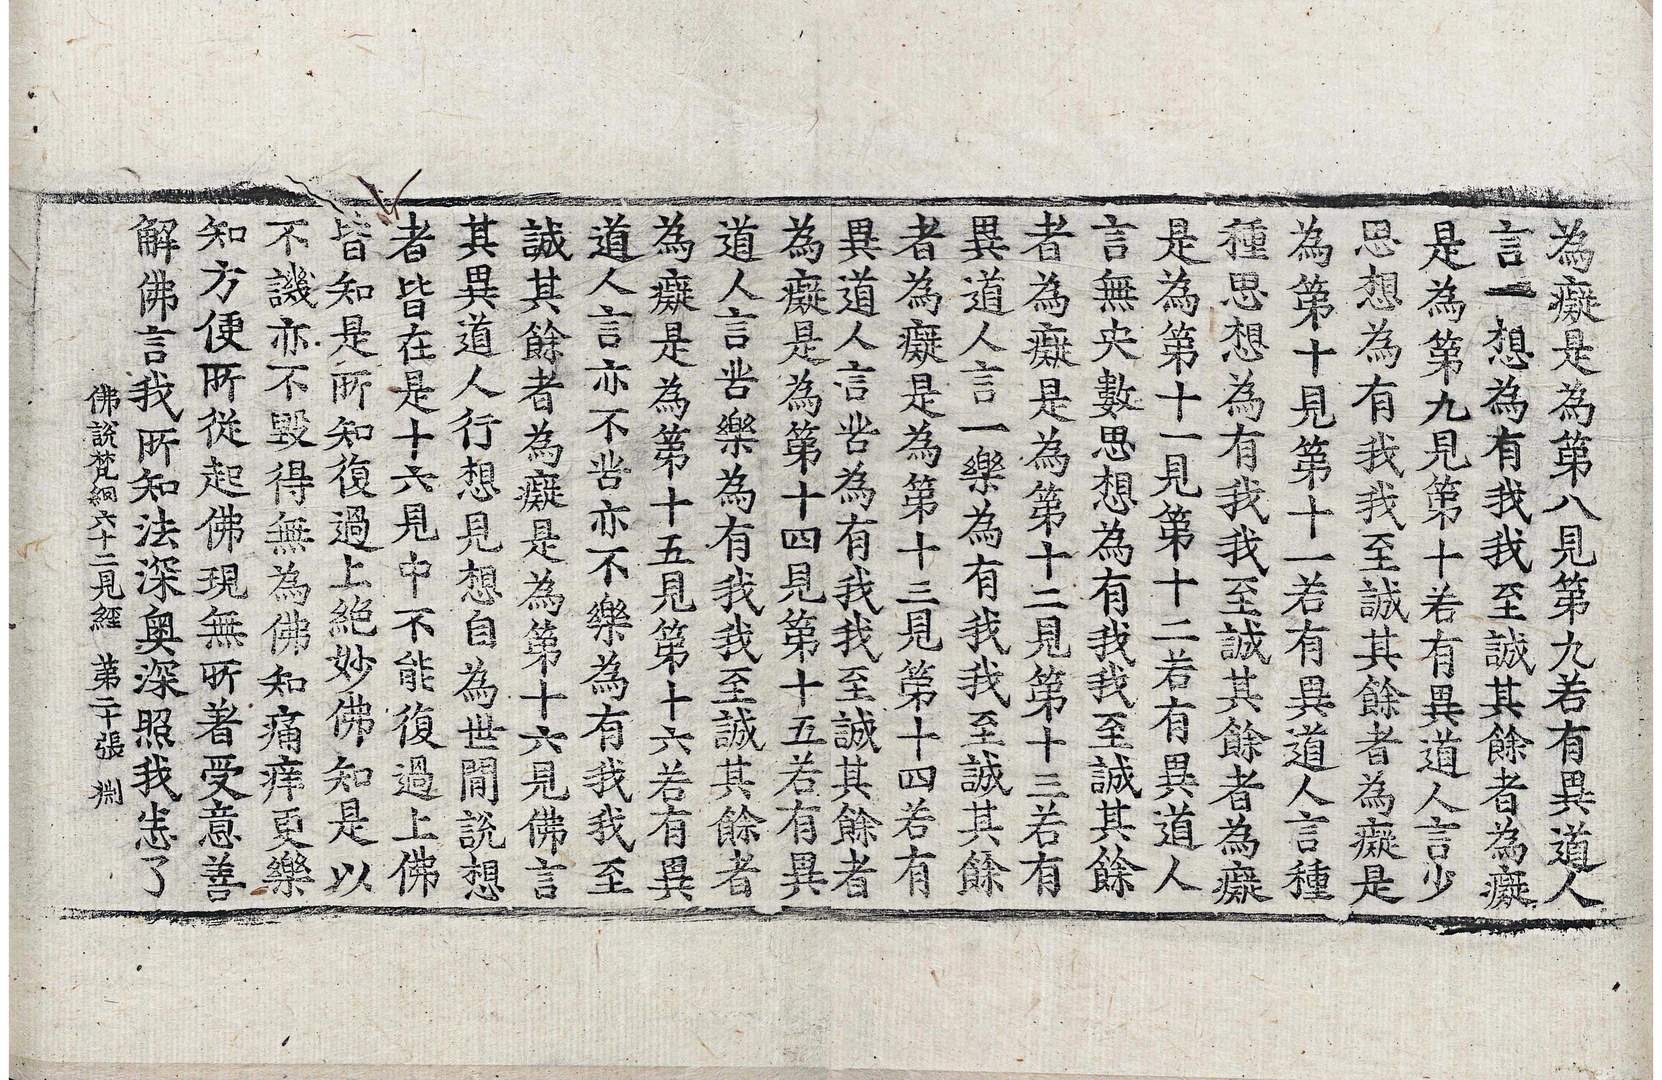 為癡是為第八見第九若有異道人
言一想為有我我至誠其餘者為癡
是為第九見第十若有異道人言少
思想為有我我至誠其餘者為癡是
為第十見第十一若有異道人言種
種思想為有我我至誠其餘者為癡
是為第十一見第十二若有異道人
言無央數思想為有我我至誠其餘
者為癡是為第十二見第十三若有
異道人言一樂為有我我至誠其餘
者為癡是為第十三見第十四若有
異道人言苦為有我我至誠其餘者
為癡是為第十四見第十五若有異
道人言苦樂為有我我至誠其餘者
為癡是為第十五見第十六若有異
道人言亦不苦亦不樂為有我我至
誠其餘者為癡是為第十六見佛言
其異道人行想見想自為世間說想
者皆在是十六見中不能復過上佛
皆知是所知復過上絕妙佛知是以
不譏亦不毀得無為佛知痛痒更樂
知方便所從起佛現無所著受意善
解佛言我所知法深奧深照我悉了
佛說梵網六十二見經 第二十張 淵